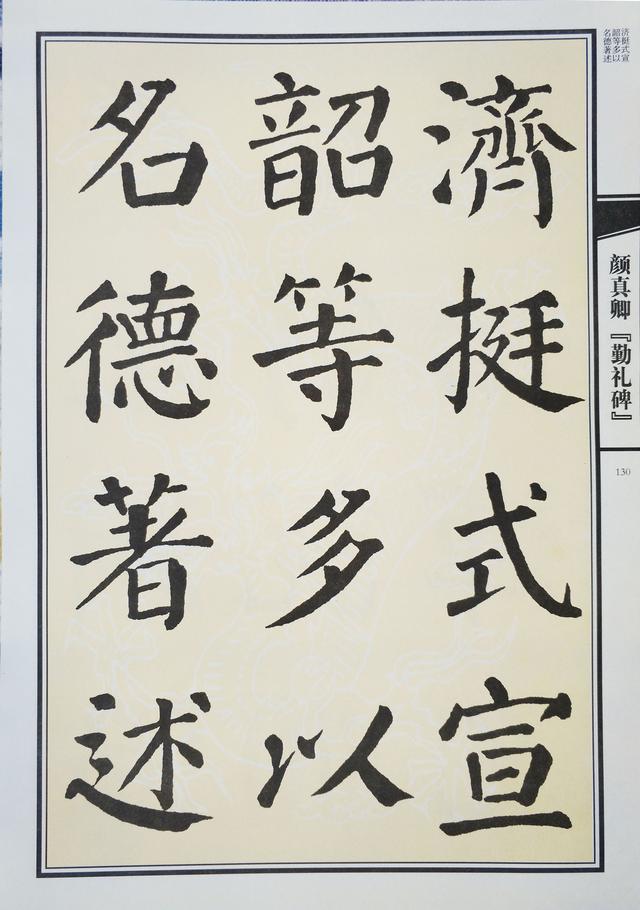 濟挺式宣
韶等多以
名德著述
济挺式宣
韶等多以
名德著述
颜真卿『勤礼碑』
130